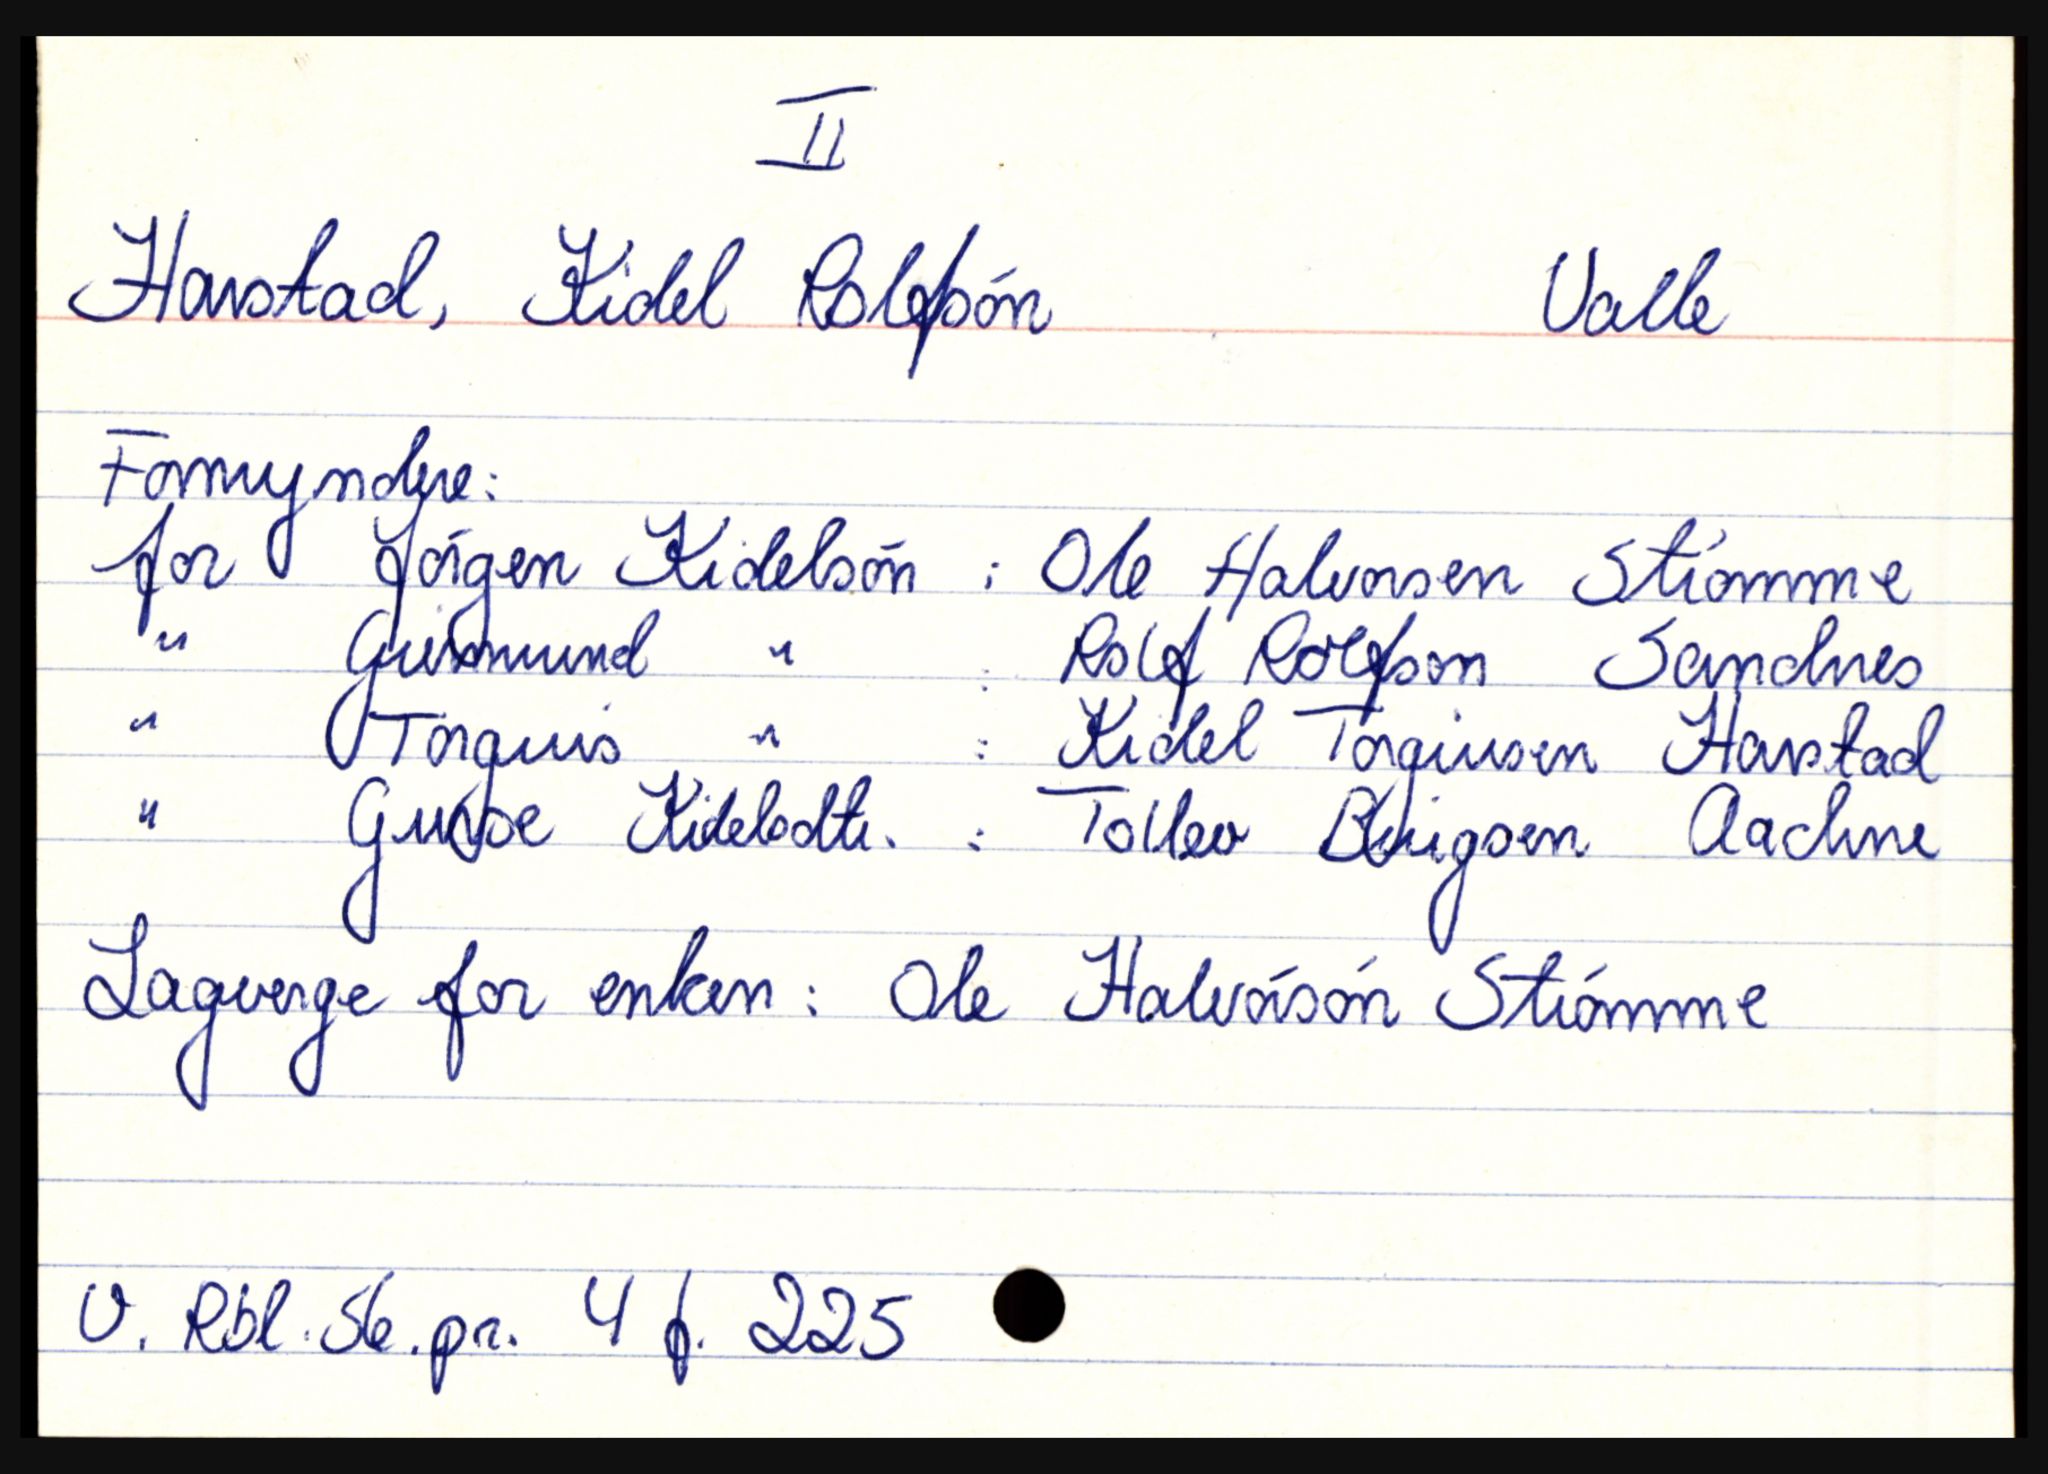 II
Harstad, Kidel Rolefsón Valle
Formyndere:
for Jórgen Kidelsón : Ole Halvorsen Stiómme
" Gunmund " : Rolf Rolefson Sandnes
" Torguis " : Kidel Torgiusen Harstad
" Guroe Kidelsdtr. : Tollev Birigsen Aachne
Lagverge for enken : Ole Halvórsón Stiómme
V. Rbl. Sk. pr. 4 f. 225